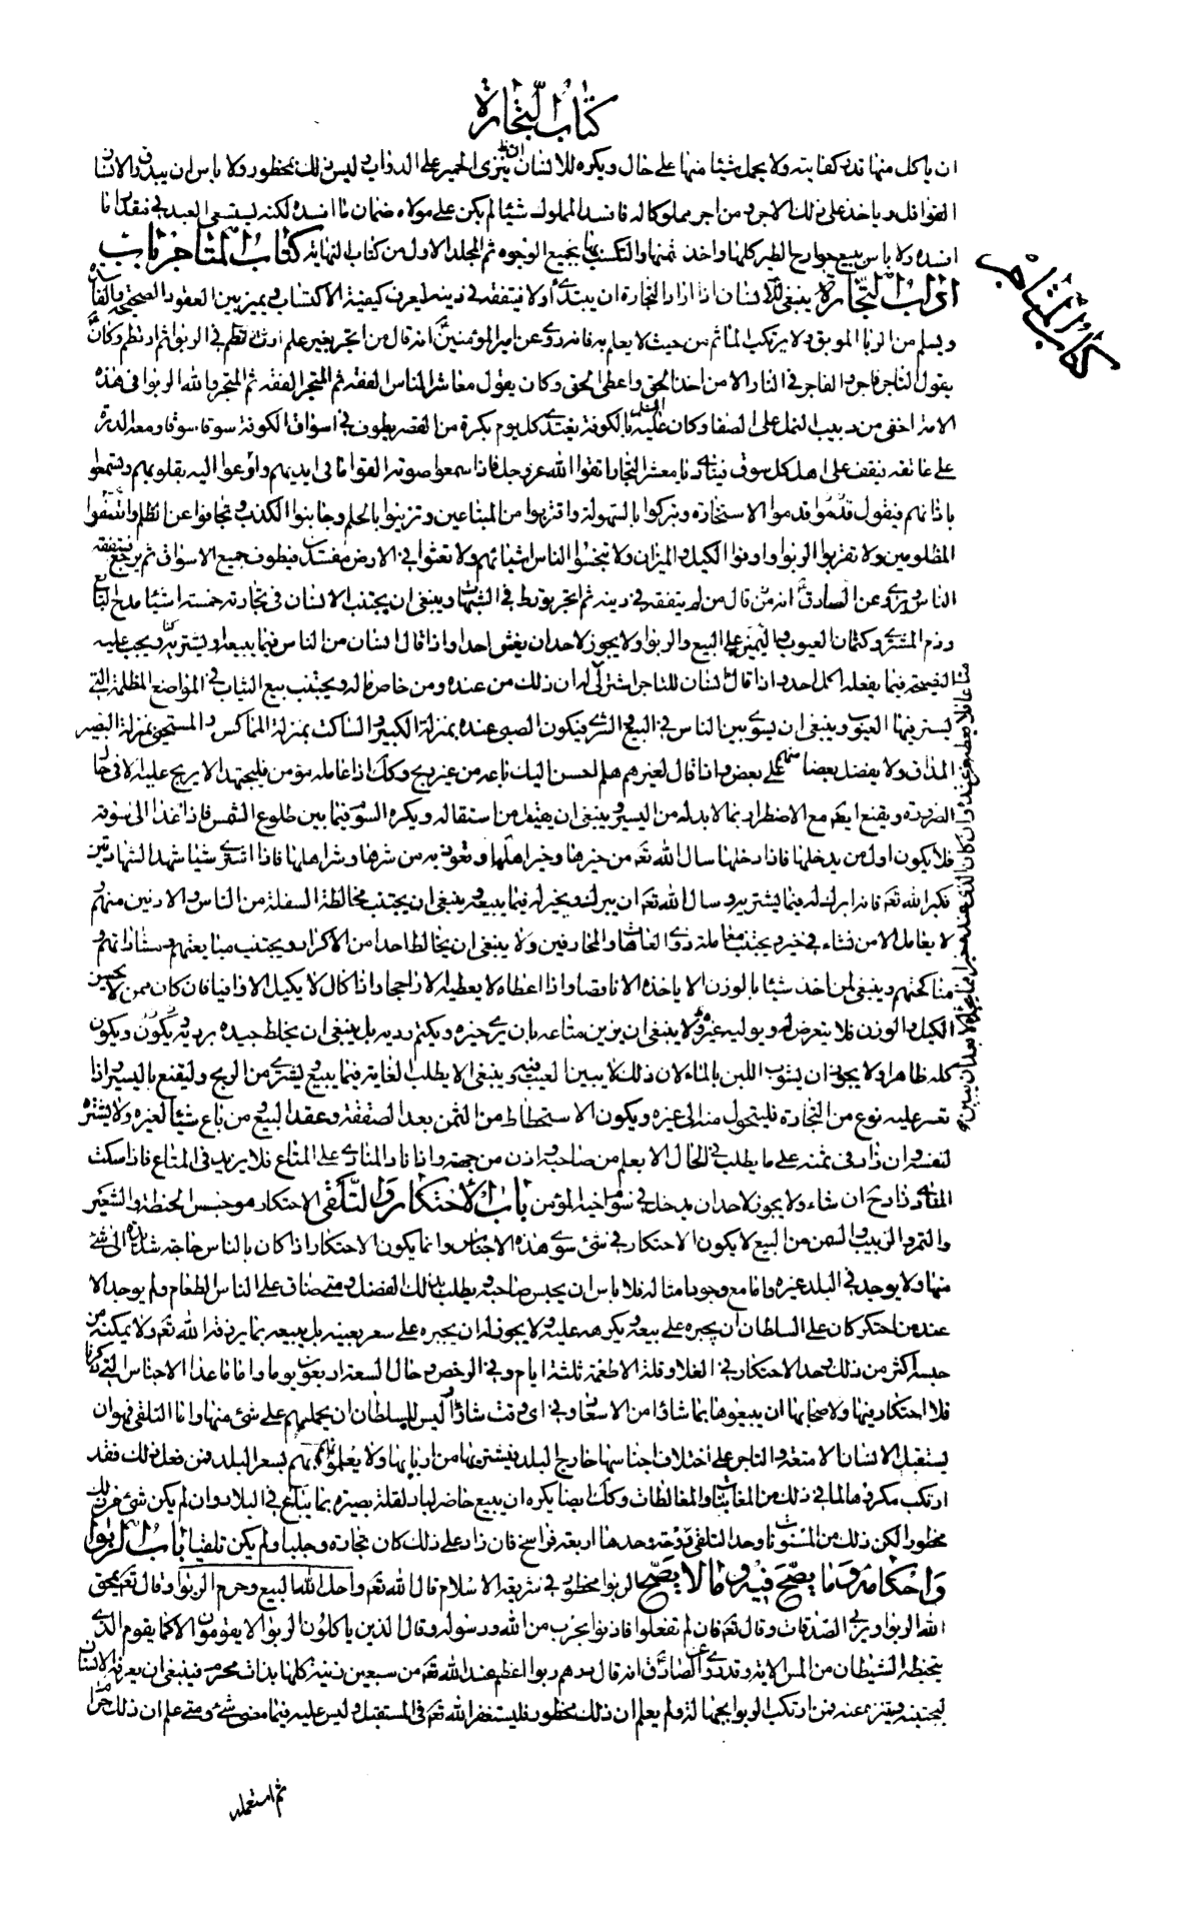 كتاب التجارة
ان ياكل منها قدر كفايته ولا يحمل شيئا منها على حال ويكره للانسان ان ينزى الحمير على الدواب وليس ذلك بمحظور ولا باس ان يبذرق الانسان
القوافل وياخذ على ذلك الاجر ومن اجر مملوكا له فافسد المملوك شيئا لم يكن على مولاه ضمان ما افسده لكنه يستسعى العبد في مقدار ما
افسده ولا باس ببيع جوارح الطير كلها واخذ ثمنها والتكسب بها بجميع الوجوه تم المجلد الاول من كتاب النهاية كتاب المتاجر باب
كتاب المتاجر
اداب التجارة ينبغي للانسان اذا اراد التجارة ان يبتدئ اولا فيتفقه في دينه ليعرف كيفية الاكتساب ويميز بين العقود الصحيحة والفاسدة
ويسلم من الربا الموبق ولا يرتكب الماثم من حيث لا يعلم به فانه روى عن امير المؤمنين انه قال من اتجر بغير علم ارتطم في الربوا ثم ارتطم وكان
يقول التاجر فاجر والفاجر في النار الا من اخذ الحق واعطى الحق وكان يقول معاشر الناس الفقه ثم المتجر الفقه ثم المتجر والله للربوا في هذه
الامة اخفى من دبيب النمل على الصفا وكان عليه السلم بالكوفة يغتدى كل يوم بكرة من القصر يطوف في اسواق الكوفة سوقا سوقا ومعه الدرة
على عاتقه فيقف على اهل كل سوق فينادى يا معشر التجار اتقوا الله عز وجل فاذا سمعوا صوته القوا ما في ايديهم وارعوا اليه بقلوبهم وتسمعوا
باذانهم فيقول قدموا الاستخارة وتبركوا بالسهولة واقتربوا من المبتاعين وتزينوا بالحلم وجانبوا الكذب وتجافوا عن الظلم وانصفوا
المظلومين ولا تقربوا الربوا واوفوا الكيل والميزان ولا تبخسوا الناس اشيائهم ولا تعثوا في الارض مفسدين فيطوف جميع الاسواق ثم يرجع فيقعد
الناس وروى عن الصادق انه قال من لم يتفقه في دينه ثم اتجر تورط في الشبهات وينبغي ان يجتنب الانسان في تجارته خمسة اشيئا مدح البايع
وذم المشترى وكتمان العيوب واليمين على البيع والربوا ولا يجوز لاحد ان يغش احدا واذا قال انسان من الناس فيما يبيعه او يشتريه ويجب عليه
النصيحة فيما يفعله لكل احد واذا قال انسان للتاجر اشتر لي ان ذلك من عنده ومن خاص ماله ويجتنب بيع الثياب في المواضع المظلمة التي
يستر فيها العيوب وينبغي ان يسوى بين الناس في البيع والشرى فيكون الصبى عنده بمنزلة الكبير والساكت بمنزلة المماكس والمستحيى بمنزلة البصير
المداق ولا يفضل بعضا منهم على بعض واذا قال لغيره هلم احسن اليك باعه من غير ربح وكذلك اذا عامله مؤمن فليجتهد الا يربح عليه الا في حال
الضرورة ويقنع ايضا مع الاضطرار بما لا بد له من اليسير وينبغي ان يقيل من استقاله ويكره السوم فيما بين طلوع الشمس فاذا غدا الى سوقه
فلا يكون اول من يدخلها فاذا دخلها سال الله تعـ من خيرها وخير اهلها وتعوذ به من شرها وشر اهلها فاذا اشترى شيئا شهد الشهادتين
وكبر الله تعـ فانه ابرك له فيما يشتريه وسال الله تعـ ان يبرك له ويخير له فيما يبيعه وينبغي ان يجتنب مخالطة السفلة من الناس والادنين منهم
لا يعامل الا من نشاء في خير ويجتنب معاملة ذوى العاهات والمحارفين ولا ينبغي ان يخالط احدا من الاكراد ويجتنب مبايعتهم ومشاراتهم و
مناكحتهم وينبغي لمن اخذ شيئا بالوزن الا ياخذه الا ناقصا واذا اعطاه لا يعطيه الا راجحا واذا كال لا يكيل الا وافيا فان كان ممن لا يحسن
الكيل والوزن فلا يتعرض له ويوليه غيره ولا ينبغي ان يزين متاعه بان يرى خيره ويكتم رديه بل ينبغي ان يخلط جيده برديه ويكون
كله ظاهرا ولا يجوز ان يشوب اللبن بالماء لان ذلك لا يبين العيب فيه وينبغي الا يطلب الغاية فيما يبيع ويشترى من الربح وليقنع باليسير واذا
تعسر عليه نوع من التجارة فليتحول منه الى غيره ويكون الاستحطاط من الثمن بعد الصفقة وعقد البيع ومن باع شيئا لغيره ولا يشتره
لنفسه وان زاد في ثمنه على ما يطلب في الحال الا بعلم من صاحبه واذن من جهته واذا نادى المنادى على المتاع فلا يزيد في المتاع فاذا سكت
المنادى زاد ح ان شاء ولا يجوز لاحد ان يدخل في سوم اخيه المؤمن باب الاحتكار والتلقى الاحتكار هو حبس الحنطة والشعير
والتمر والزبيب والسمن من البيع لا يكون الاحتكار في شئ سوى هذه الاجناس وانما يكون الاحتكار اذا كان بالناس حاجة شديدة الى شئ
منها ولا يوجد في البلد غيره واما مع وجود امثاله فلا باس ان يحبس صاحبه ويطلب بذلك الفضل ومتى ضاق على الناس الطعام ولم يوجد الا
عند من احتكر كان على السلطان ان يجبره على بيعه ويكرهه عليه ولا يجوز له ان يجبره على سعر بعينه بل يبيعه بما يرزقه الله تعـ ولا يمكنه من
حبسه اكثر من ذلك وحد الاحتكار في الغلا وقلة الاطعمة ثلثة ايام وفي الرخص وحال السعة اربعون يوما واما ما عدا الاجناس التي ذكرناها
فلا احتكار فيها ولاصحابها ان يبيعوها بما شاؤا من الاسعار وفي اى وقت شاؤا وليس للسلطان ان يحملهم على شئ منها واما التلقى فهو ان
يستقبل الانسان الامتعة والمتاجر على اختلاف اجناسها خارج البلد فيشتريها من اربابها ولا يعلمون هم بسعر البلد فمن فعل ذلك فقد
ارتكب مكروها لما في ذلك من المغابنات والمغالطات وكذلك ايضا يكره ان يبيع حاضر لباد لقلة بصيرته بما يباع في البلاد وان لم يكن شئ من ذلك
محظورا لكن ذلك من المسنونات وحد التلقى روحة وحدها اربعة فراسخ فان زاد على ذلك كان تجارة وجلبا ولم يكن تلقيا باب الربوا
واحكامه وما يصح فيه وما لا يصح الربوا محظور في شريعة الاسلام قال الله تعـ واحل الله البيع وحرم الربوا وقال تعـ يمحق
الله الربوا ويربى الصدقات وقال تعـ فان لم تفعلوا فاذنوا بحرب من الله ورسوله وقال الذين ياكلون الربوا لا يقومون الا كما يقوم الذى
يتخبطه الشيطان من المس الاية وقد روى عن الصادق انه قال درهم ربوا اعظم عند الله تعـ من سبعين زنية كلها بذات محرم فينبغي ان يعرفه الانسان
ليجتنبه ويتنزه عنه فمن ارتكب الربوا بجهالة ولم يعلم ان ذلك محظور فليستغفر الله تعـ في المستقبل وليس عليه فيما مضى شئ ومتى علم ان ذلك حرام
ثم استعمله